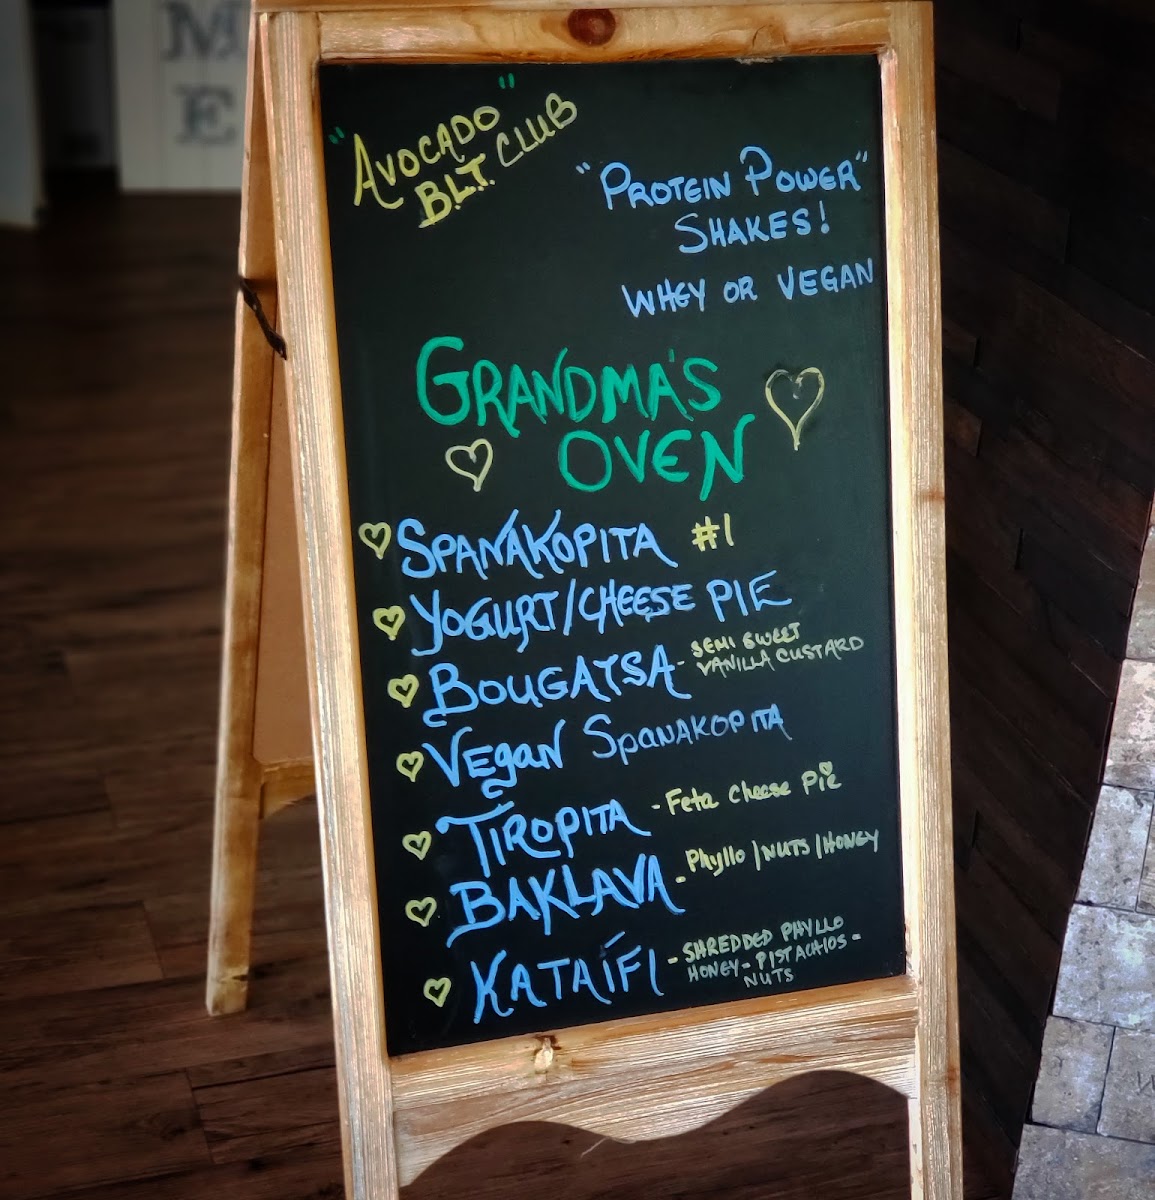 M
E
"AVOCADO"
B.L.T. CLUB
"PROTEIN POWER"
SHAKES!
WHEY OR VEGAN
GRANDMA'S
OVEN
SPANAKOPITA #1
YOGURT/CHEESE PIE
BOUGATSA - SEMI SWEET
VANILLA CUSTARD
VEgAN SpaNAKOPITA
TIROPITA - Feta cheese Pie
BAKLAVA - Phyllo/NUTS/HONEY
KATAÍFI - SHREDDED PHYLLO
HONEY - PISTACHIOS -
NUTS